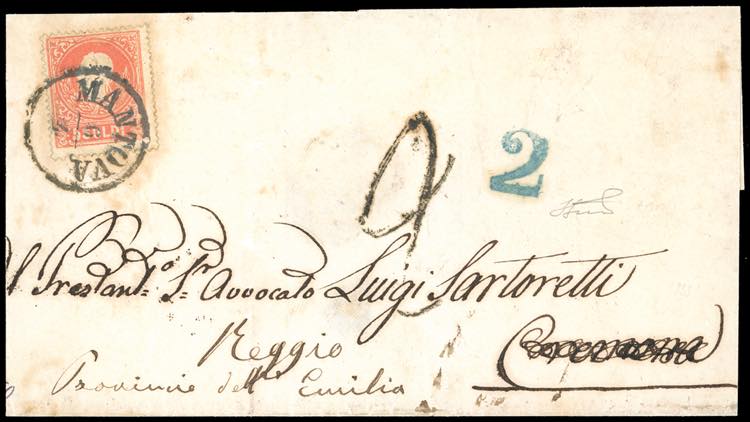 MANTOVA
2
2
Al Prestant.º S.r Avvocato Luigi Sartoretti
Reggio
Cremona
Provincie dell' Emilia